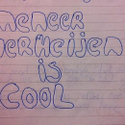 meneer
verheijen
is
COOL